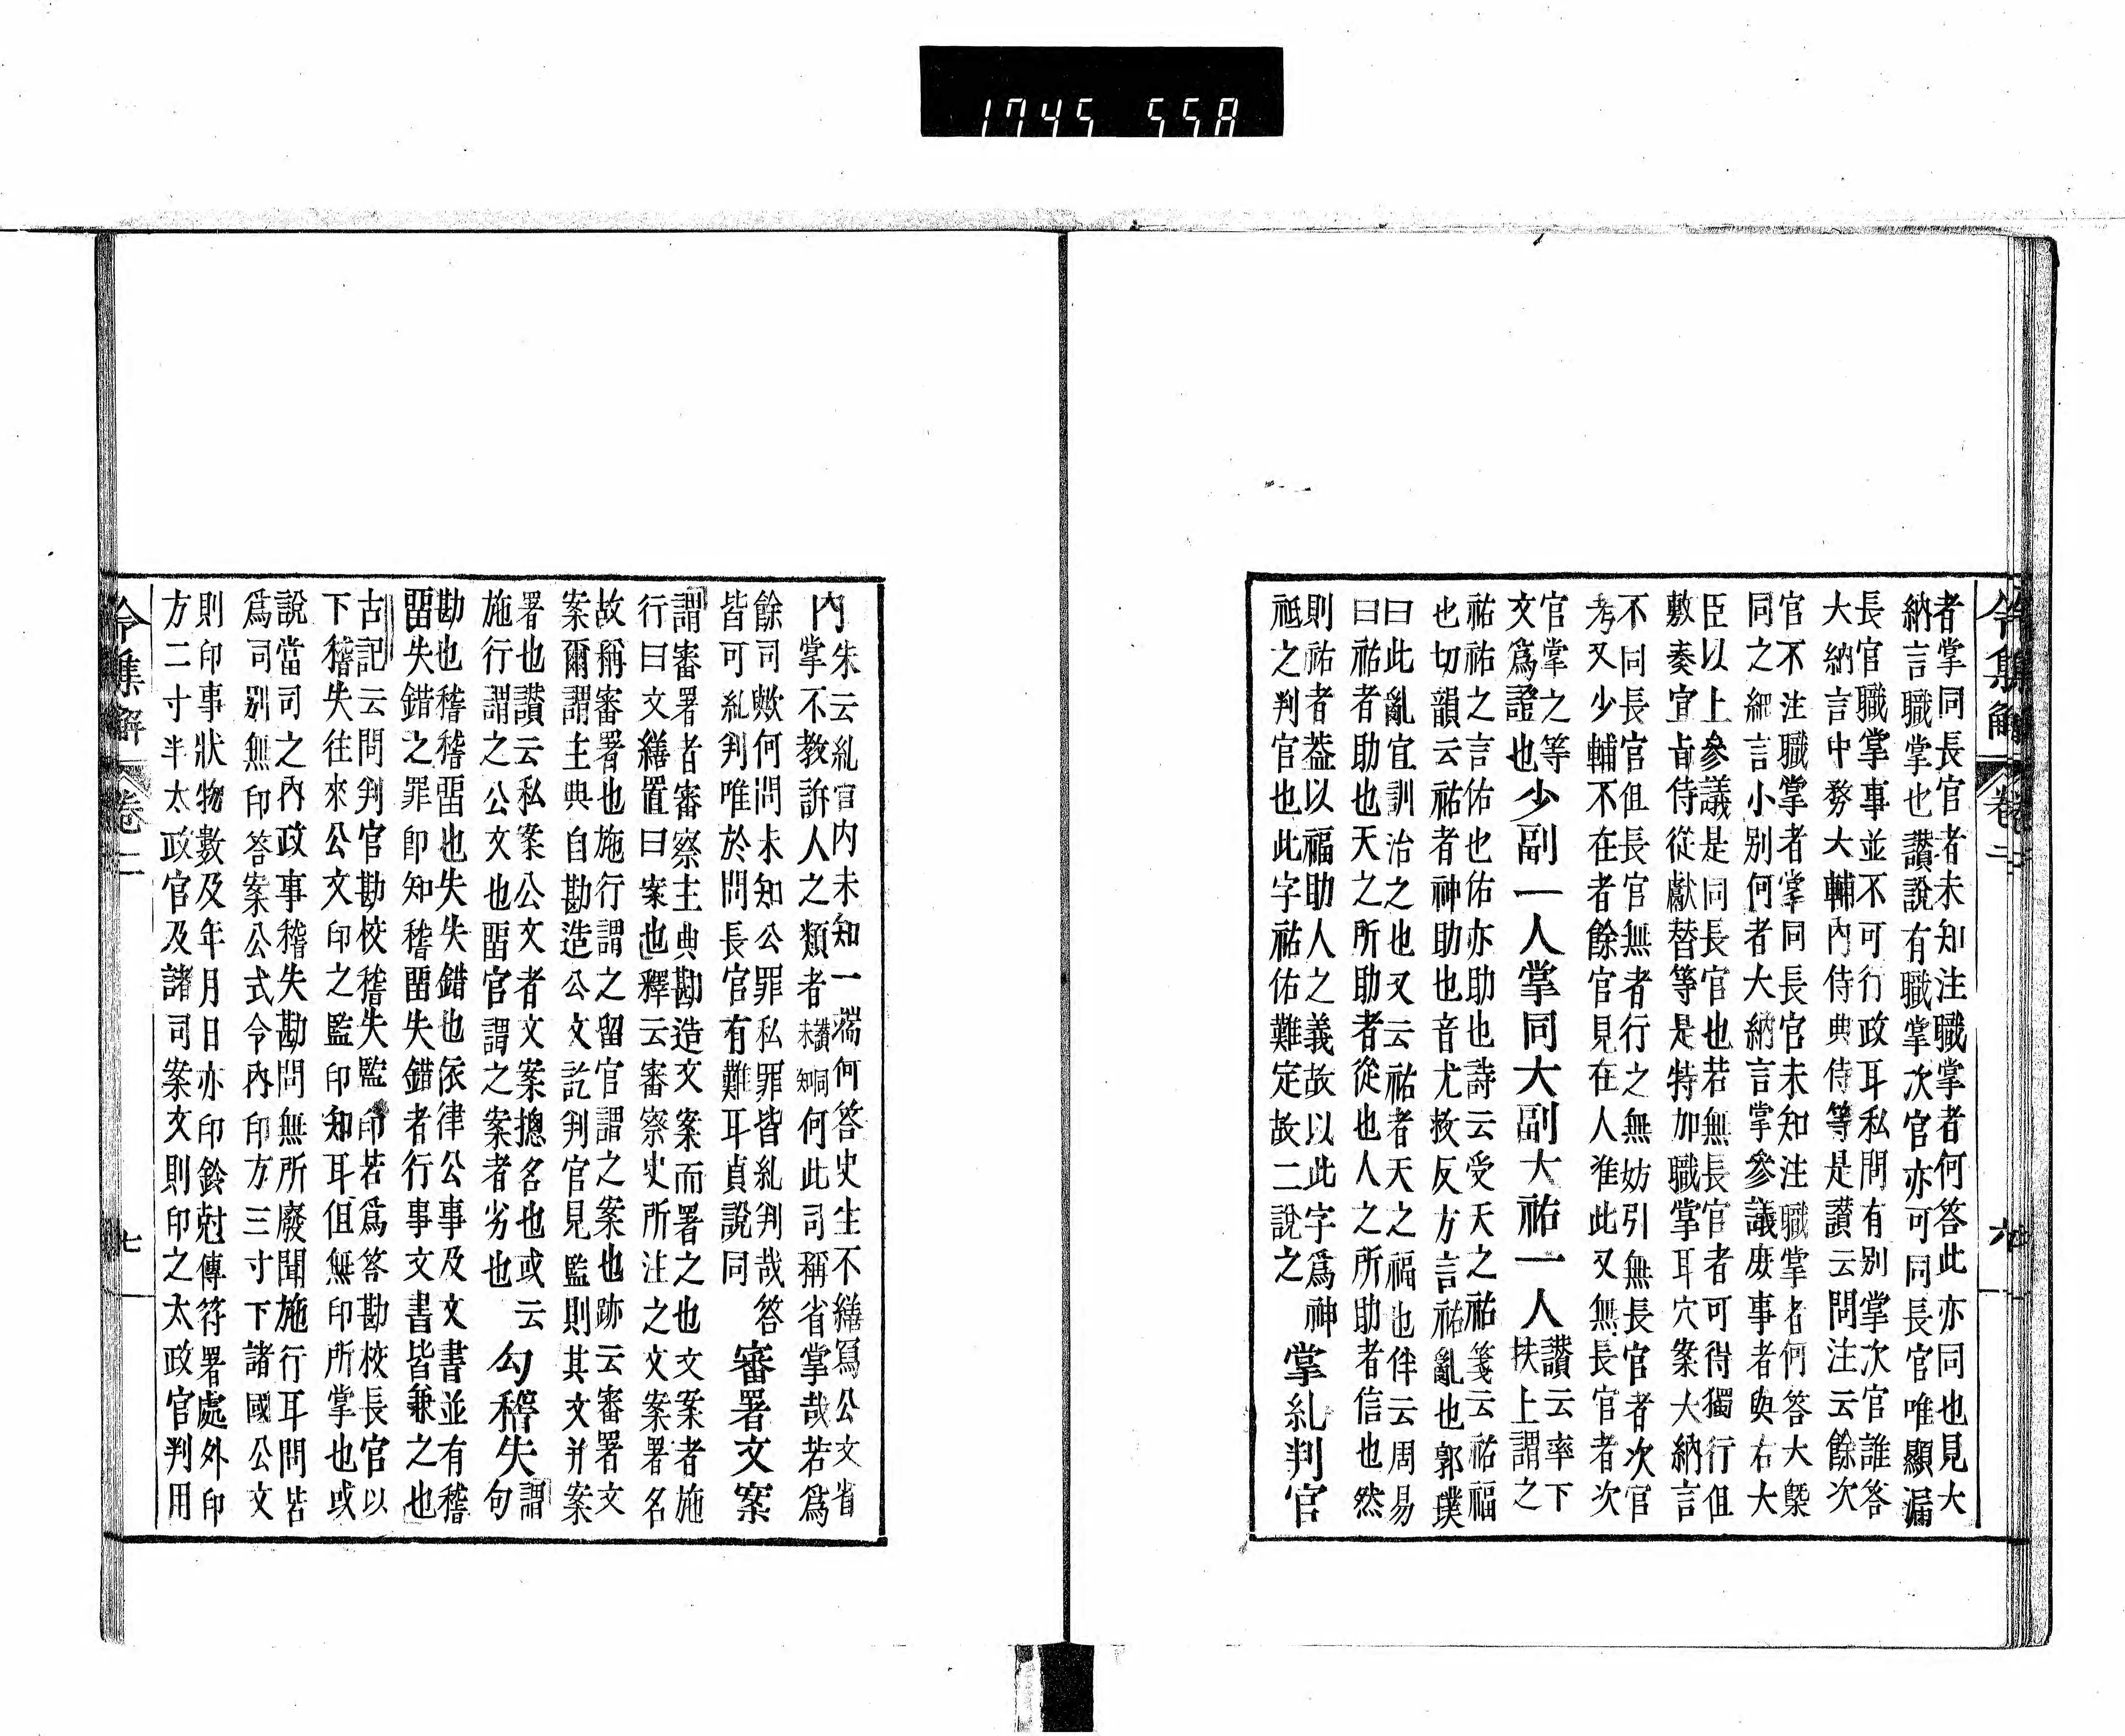 1745 55A
令集解 卷二 六
者掌同長官者未知注職掌者何答此亦同也見大
納言職掌也讃說有職掌次官亦可同長官唯顯漏
長官職掌事並不可行政耳私問有別掌次官誰答
大納言中務大輔內侍典侍等是讃云問注云餘次
官不注職掌者掌同長官未知注職掌者何答大槩
同之細言小別何者大納言掌參議庶事者與右大
臣以上參議是同長官也若無長官者可得獨行但
敷奏宣旨侍從獻替等是特加職掌耳穴案大納言
不同長官但長官無者行之無妨引無長官者次官
考又少輔不在者餘官見在人准此又無長官者次
官掌之等
文爲證也
少副一人掌同大副大祐一人
讃云率下
扶上謂之
祐祐之言佑也佑亦助也詩云受天之祐箋云祐福
也切韻云祐者神助也音尤救反方言祐亂也郭璞
曰此亂宜訓治之也又云祐者天之福也伴云周易
曰祐者助也天之所助者從也人之所助者信也然
則祐者葢以福助人之義故以此字爲神
祗之判官也此字祐佑難定故二說之
掌糺判官
內
朱云糺官內未知一端何答史生不繕寫公文省
掌不教訴人之類者未讃知同何此司稱省掌哉若爲
餘司歟何問未知公罪私罪皆糺判哉答
皆可糺判唯於問長官有難耳貞說同
審署文案
謂審署者審察主典勘造文案而署之也文案者施
行曰文繕置曰案也釋云審察史所注之文案署名
故稱審署也施行謂之留官謂之案也跡云審署文
案爾謂主典自勘造公文訖判官見監則其文并案
署也讃云私案公文者文案摠名也或云
施行謂之公文也畱官謂之案者劣也
勾稽失
謂
句
勘也稽稽畱也失失錯也依律公事及文書並有稽
畱失錯之罪卽知稽畱失錯者行事文書皆兼之也
古記云問判官勘校稽失監印若爲答勘校長官以
下稽失往來公文印之監印知耳但無印所掌也或
說當司之內政事稽失勘問無所廢聞施行耳問若
爲司別無印答案公式令內印方三寸下諸國公文
則印事狀物數及年月日亦印鈴尅傳符署處外印
方二寸半太政官及諸司案文則印之太政官判用
令集解 卷二 七